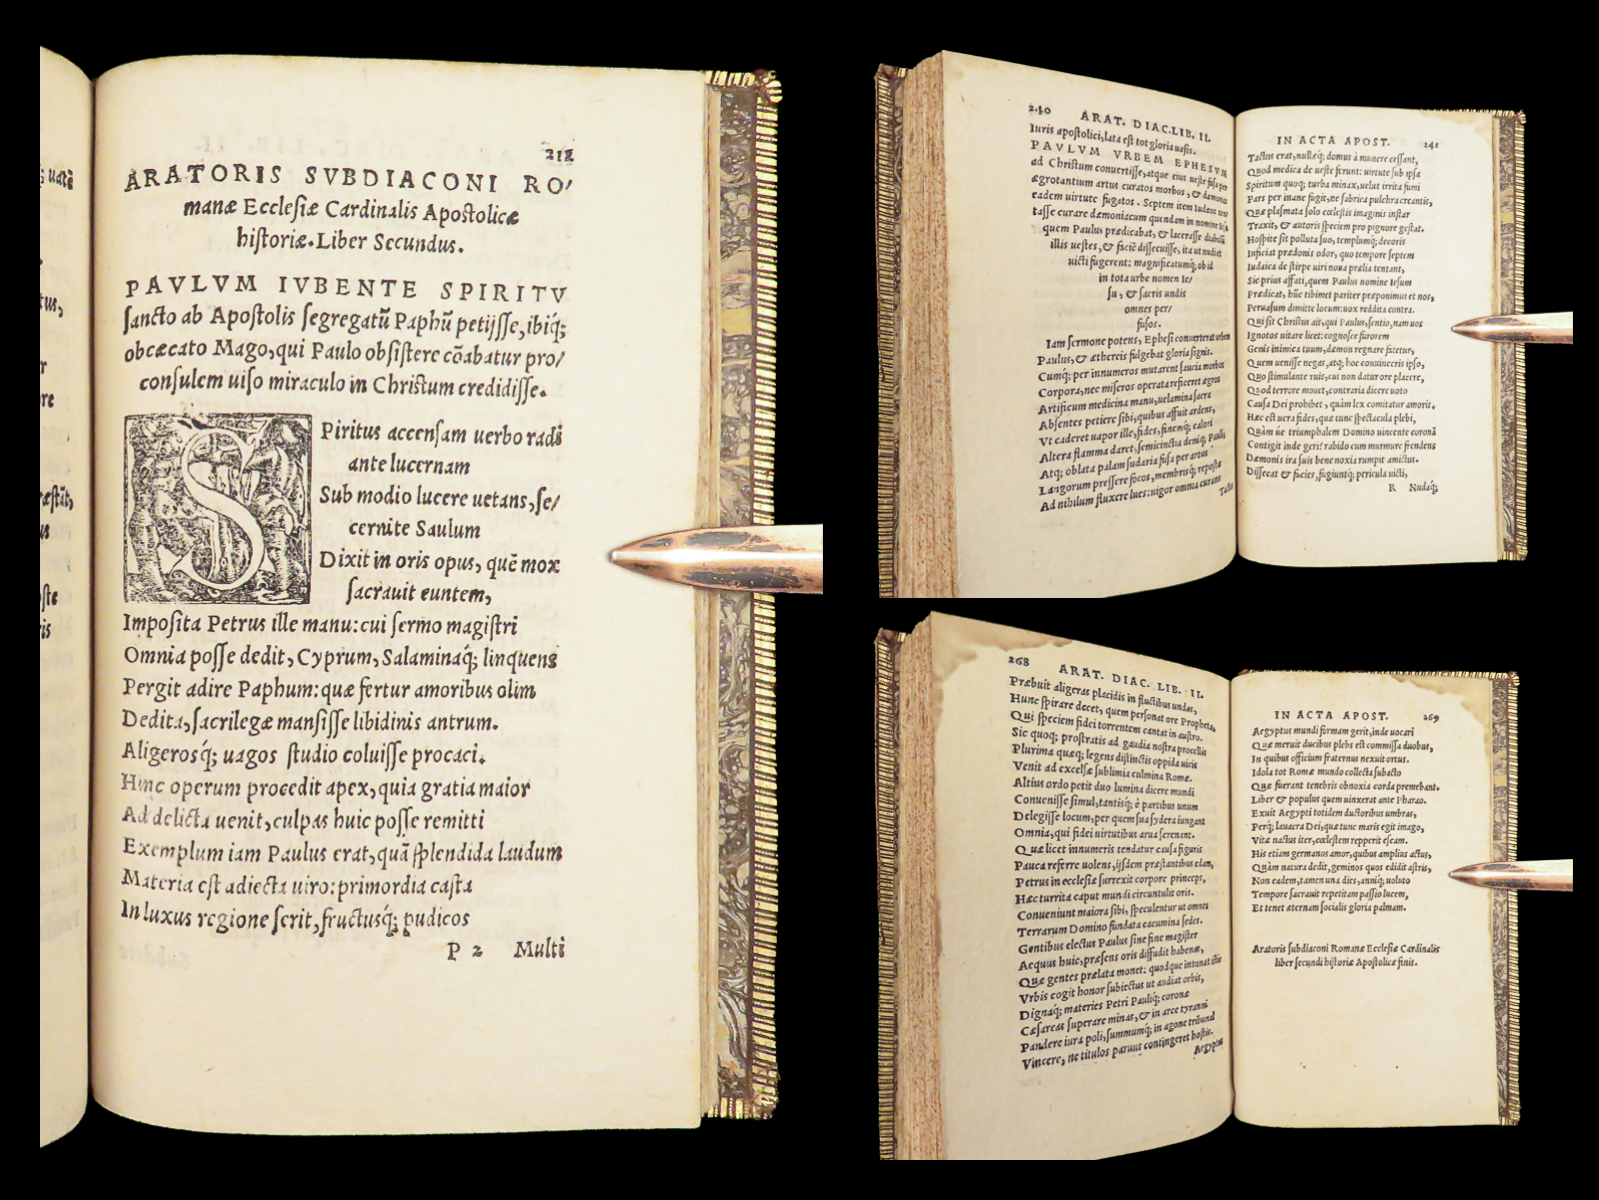 212
ARATORIS SVBDIACONI RO/
manæ Ecclesiæ Cardinalis Apostolicæ
historiæ. Liber Secundus.
PAVLVM IVBENTE SPIRITV
sancto ab Apostolis segregatū Paphū petijsse, ibiq́;
obcæcato Mago, qui Paulo obsistere cōabatur pro/
consulem uiso miraculo in Christum credidisse.
SPiritus accensam uerbo radi
ante lucernam
Sub modio lucere uetans, se/
cernite Saulum
Dixit in oris opus, quē mox
sacrauit euntem,
Imposita Petrus ille manu: cui sermo magistri
Omnia posse dedit, Cyprum, Salaminaq́; linquens
Pergit adire Paphum: quæ fertur amoribus olim
Dedita, sacrilegæ mansisse libidinis antrum.
Aligerosq́; uagos studio coluisse procaci.
Hinc operum procedit apex, quia gratia maior
Ad delicta uenit, culpas huic posse remitti
Exemplum iam Paulus erat, quā splendida laudum
Materia est adiecta uiro: primordia casta
In luxus regione serit, fructusq́; pudicos
P 2 Multi
ARAT. DIAC. LIB. II.
Iuris apostolici, lata est tot gloria uestis.
PAVLVM VRBEM EPHESVM
ad Christum conuertisse, atque eius ueste fusa per
ægrotantium artus curatos morbos, & dæmonia
eadem uirtute fugatos. Septem item Iudæos ten/
tasse curare dæmoniacum quendam in nomine Iesu,
quem Paulus prædicabat, & lacerasse diaboli
illis uestes, & faciē dissecuisse, ita ut nudi et
uicti fugerent: magnificatumq́; ob id
in tota urbe nomen Ie/
su, & sacris undis
omnes per/
fusos.
Iam sermone potens, Ephesi conuerterat urbem
Paulus, & æthereis fulgebat gloria signis.
Cumq́; per innumeros mutarent saucia morbos
Corpora, nec miseros operata reficeret ægros
Artificum medicina manu, uelamina sacra
Absentes petiere sibi, quibus affuit ardens,
Vt caderet uapor ille, fides, finemq́; calori
Altera flamma daret, semicinctia deniq́; Pauli
Atq́; oblata palam sudaria fusa per artus
Langorum pressere focos, membrisq́; repostæ
Ad nihilum fluxere lues: uigor omnia curans
Tactus
IN ACTA APOST. 241
Tactus erat, nullæq́; domus à munere cessant,
Quod medica de ueste ferunt: uirtute sub ipsa
Spirituum quoq; turba minax, uelut irrita fumi
Pars per inane fugit, ne fabrica pulchra creantis,
Quæ plasmata solo cœlestis imaginis instar
Traxit, & autoris speciem pro pignore gestat.
Hospite sit polluta suo, templumq́; decoris
Inficiat prædonis odor, quo tempore septem
Iudaica de stirpe uiri noua prælia tentant,
Sic prius affati, quem Paulus nomine Iesum
Prædicat, hūc tibimet pariter præponimus et nos,
Peruasum dimitte locum: uox reddita contra.
Qui sit Christus ait, qui Paulus, sentio, nam uos
Ignotos uitare licet: cognosce furorem
Gens inimica tuum, dæmon regnare fatetur,
Quem uenisse negas, atq; hoc conuinceris ipso,
Quo stimulante ruis, cui non datur ore placere,
Quod terrore mouet, contraria dicere uoto
Causa Dei prohibet, quàm lex comitatur amoris.
Hæc est uera fides, quæ tunc spectacula plebi,
Quàm ue triumphalem Domino uincente coronā
Contigit inde geri? rabido cum murmure frendens
Dæmonis ira suis bene noxia rumpit amictus.
Dissecat & facies, fugiuntq́; pericula uicti,
R Nudaq́;
268 ARAT. DIAC. LIB. II.
Præbuit aligeras placidis in fluctibus undas,
Hunc spirare decet, quem personat ore Propheta,
Qui speciem fidei torrentem cantat in austro.
Sic quoq; prostratis ad gaudia nostra procellis
Plurima quæq; legens distinctis oppida uicis
Venit ad excelsæ sublimia culmina Romæ.
Altius ordo petit duo lumina dicere mundi
Conuenisse simul, tantisq́; è partibus unum
Delegisse locum, per quem sua sydera iungant
Omnia, qui fidei uirtutibus arua serenant.
Quæ licet innumeris tendatur causa figuris
Pauca referre uolens, ijsdem præstantibus edam,
Petrus in ecclesiæ surrexit corpore princeps,
Hæc turrita caput mundi circuntulit oris.
Conueniunt maiora sibi, speculentur ut omnes
Terrarum Domino fundata cacumina sedes.
Gentibus electus Paulus sine fine magister
Aequus huic, præsens oris diffudit habenas,
Quæ gentes prælata monet: quodque intonat istic
Vrbis cogit honor subiectus ut audiat orbis,
Dignaq́; materies Petri Pauliq́; coronæ
Cæsareas superare minas, & in arce tyranni
Pandere iura poli, summumq́; in agone tribunal
Vincere, ne titulos paruus contingeret hostis.
Aegyptus
IN ACTA APOST. 269
Aegyptus mundi formam gerit, inde uocari
Quæ meruit ducibus plebs est commissa duobus,
In quibus officium fraternus nexuit ortus.
Idola tot Romæ mundo collecta subacto
Quæ fuerant tenebris obnoxia corda premebant.
Liber & populus quem uinxerat ante Pharao.
Exuit Aegypti totidem ductoribus umbras,
Perq́; lauacra Dei, quæ tunc maris egit imago,
Vitæ nactus iter, cœlestem repperit escam.
His etiam germanus amor, quibus amplius actus,
Quàm natura dedit, geminos quos edidit astris,
Non eadem, tamen una dies, anniq́; uoluto
Tempore sacrauit repetitam passio lucem,
Et tenet æternam socialis gloria palmam.
Aratoris subdiaconi Romanæ Ecclesiæ Cardinalis
liber secundi historiæ Apostolicæ finis.